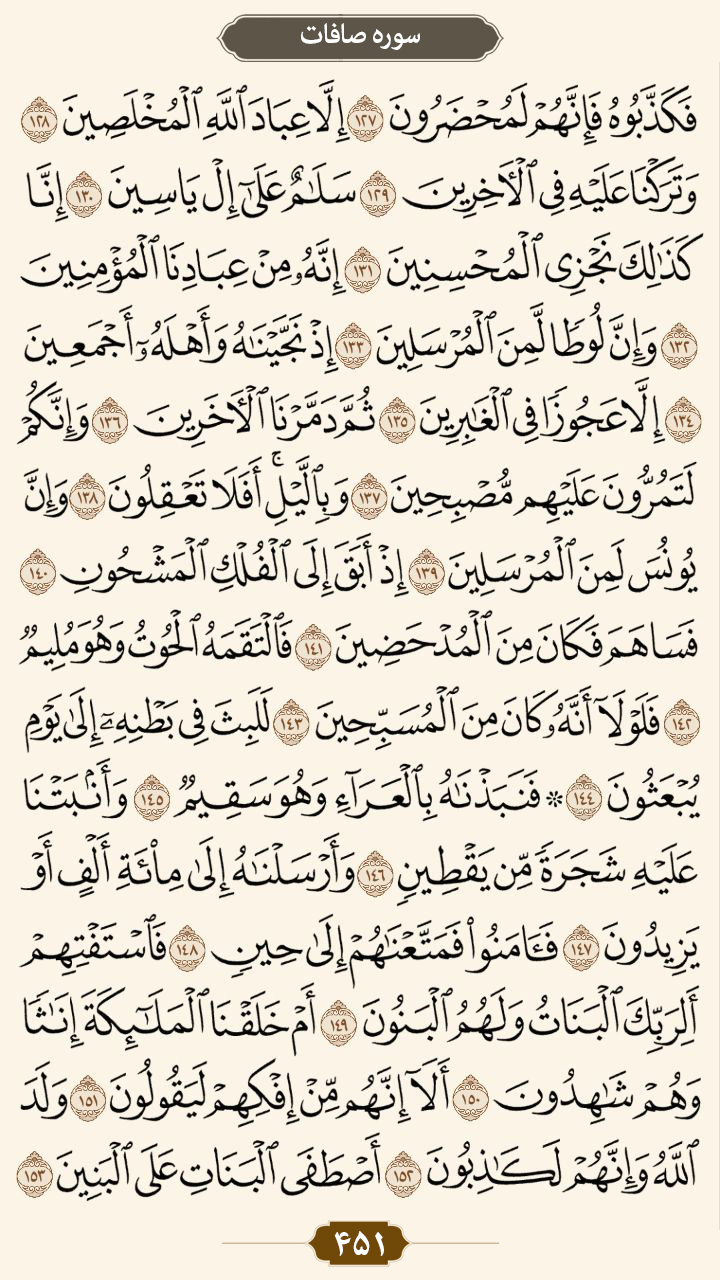 سوره صافات
فَكَذَّبُوهُ فَإِنَّهُمْ لَمُحْضَرُونَ ١٢٧ إِلَّا عِبَادَ ٱللَّهِ ٱلْمُخْلَصِينَ ١٢٨
وَتَرَكْنَا عَلَيْهِ فِى ٱلْأَخِرِينَ ١٢٩ سَلَـٰمٌ عَلَىٰٓ إِلْ يَاسِينَ ١٣٠ إِنَّا
كَذَٰلِكَ نَجْزِى ٱلْمُحْسِنِينَ ١٣١ إِنَّهُۥ مِنْ عِبَادِنَا ٱلْمُؤْمِنِينَ
١٣٢ وَإِنَّ لُوطًا لَّمِنَ ٱلْمُرْسَلِينَ ١٣٣ إِذْ نَجَّيْنَـٰهُ وَأَهْلَهُۥٓ أَجْمَعِينَ
١٣٤ إِلَّا عَجُوزًا فِى ٱلْغَـٰبِرِينَ ١٣٥ ثُمَّ دَمَّرْنَا ٱلْأَخَرِينَ ١٣٦ وَإِنَّكُمْ
لَتَمُرُّونَ عَلَيْهِم مُّصْبِحِينَ ١٣٧ وَبِٱلَّيْلِ ۚ أَفَلَا تَعْقِلُونَ ١٣٨ وَإِنَّ
يُونُسَ لَمِنَ ٱلْمُرْسَلِينَ ١٣٩ إِذْ أَبَقَ إِلَى ٱلْفُلْكِ ٱلْمَشْحُونِ ١٤٠
فَسَاهَمَ فَكَانَ مِنَ ٱلْمُدْحَضِينَ ١٤١ فَٱلْتَقَمَهُ ٱلْحُوتُ وَهُوَ مُلِيمٌ
١٤٢ فَلَوْلَآ أَنَّهُۥ كَانَ مِنَ ٱلْمُسَبِّحِينَ ١٤٣ لَلَبِثَ فِى بَطْنِهِۦٓ إِلَىٰ يَوْمِ
يُبْعَثُونَ ١٤٤ ۞ فَنَبَذْنَـٰهُ بِٱلْعَرَآءِ وَهُوَ سَقِيمٌ ١٤٥ وَأَنۢبَتْنَا
عَلَيْهِ شَجَرَةً مِّن يَقْطِينٍ ١٤٦ وَأَرْسَلْنَـٰهُ إِلَىٰ مِا۟ئَةِ أَلْفٍ أَوْ
يَزِيدُونَ ١٤٧ فَـَٔامَنُوا۟ فَمَتَّعْنَـٰهُمْ إِلَىٰ حِينٍ ١٤٨ فَٱسْتَفْتِهِمْ
أَلِرَبِّكَ ٱلْبَنَاتُ وَلَهُمُ ٱلْبَنُونَ ١٤٩ أَمْ خَلَقْنَا ٱلْمَلَـٰٓئِكَةَ إِنَـٰثًا
وَهُمْ شَـٰهِدُونَ ١٥٠ أَلَآ إِنَّهُم مِّنْ إِفْكِهِمْ لَيَقُولُونَ ١٥١ وَلَدَ
ٱللَّهُ وَإِنَّهُمْ لَكَـٰذِبُونَ ١٥٢ أَصْطَفَى ٱلْبَنَاتِ عَلَى ٱلْبَنِينَ ١٥٣
۴۵۱